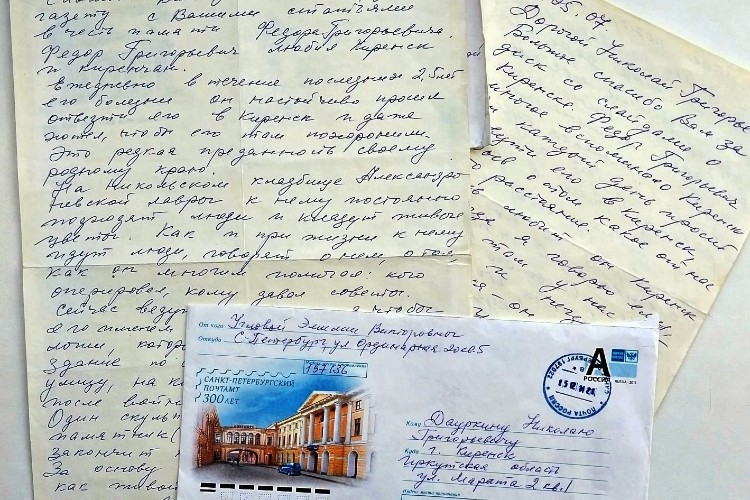 газету с Вашими статьями
в честь памяти Федора Григорьевича.
Федор Григорьевич любил Киренск
и киренчан.
Ежедневно в течение последних 2,5 лет
его болезни он настойчиво просил
отвезти его в Киренск и даже
хотел, чтобы его там похоронили.
Это редкая преданность своему
родному краю.
На Никольском кладбище Александро
Невской лавры к нему постоянно
подходят люди и кладут живые
цветы. Как и при жизни к нему
идут люди, говорят о нем, о том,
как он многим помогал: кого
оперировал, кому давал советы.
Сейчас ведут
его именем
здание по
улицу, на ко
после войны
Один скуль
памятник
законч
За основу
как живо
25.07.
Дорогой Николай Григорье
Большое спасибо Вам за
диск со слайдами о
Киренске. Федор Григорьевич
вспоминал Киренск
каждый день просил
его в Киренск,
о том какое от нас
расстояние.
я говорю ему
у нас
От кого Угловой Эмилии Викторовны
Откуда С-Петербург ул Ординарная
197136
САНКТ-ПЕТЕРБУРГСКИЙ
ПОЧТАМТ
300 ЛЕТ
А
РОССИЯ
ПОЧТА РОССИИ
Кому Дауркину Николаю
Григорьевичу
Куда г. Киренск
Иркутская область
ул. Марата 2 кв. 1